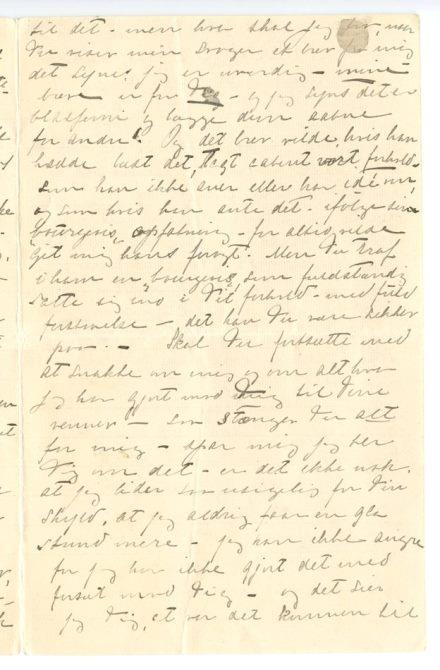 til det - men hva skal jeg tro, naar
Du viser min svoger et brev fra mig
det synes jeg er uværdig - mine
breve er for Dig - og jeg synes det er
blasfemi og lægge dem aabne
for andre! Og det brev vilde, hvis han
hadde læst det, lagt aabent vort forhold,
som han ikke aner eller har idé om,
og som hvis han ante det - ifølge sin
"bourgeois" opfatning - for altid vilde
git mig hans foragt. Men Du traf
i ham en "bourgeois" som fuldstændig
satte sig ind i Dit forhold - med fuld
forstaaelse - det kan Du være sikker
paa. - Skal Du fortsætte med
at snakke om mig og om alt hva
jeg har gjort mod Dig til Dine
venner - saa stænger Du alt
for mig - spar mig jeg ber
Dig om det - er det ikke nok,
at jeg lider saa usigelig for Din
skyld, at jeg aldrig faar en gla
stund mere - jeg kan ikke angre
for jeg har ikke gjort det med
forsæt mod Dig - og det sier
jeg Dig, at var det kommen til